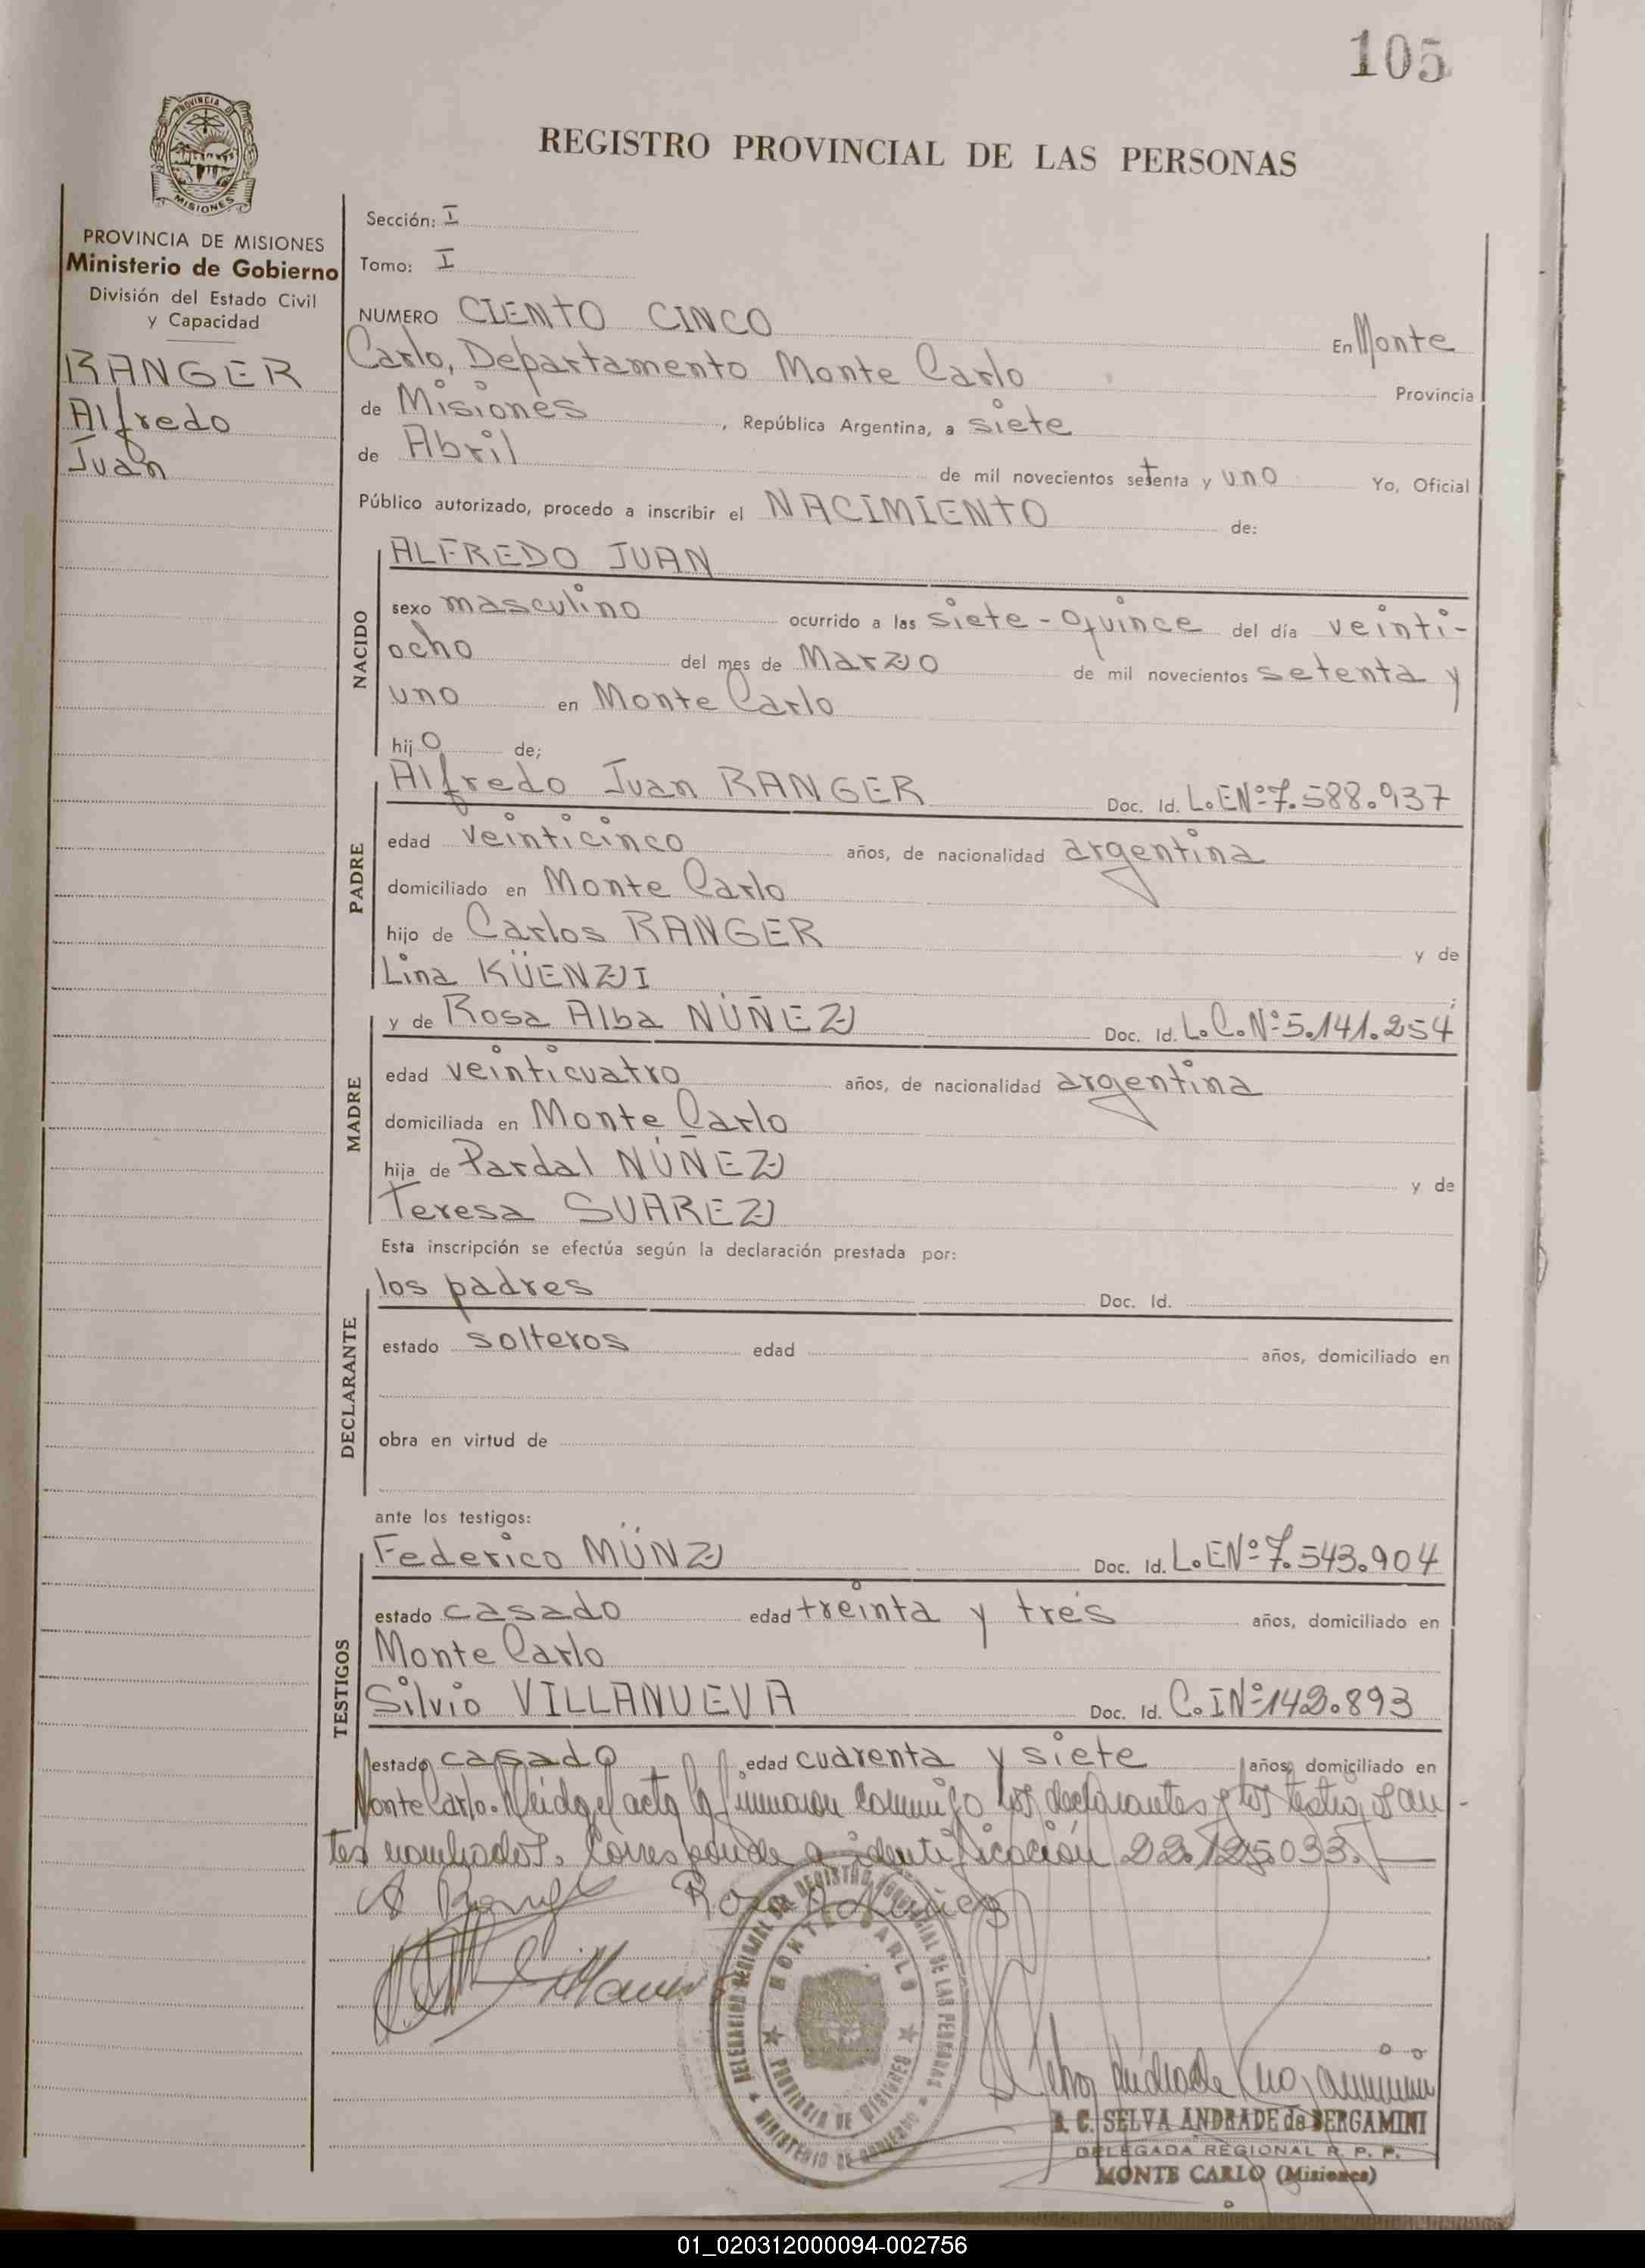 105
PROVINCIA DE
MISIONES
REGISTRO PROVINCIAL DE LAS PERSONAS
PROVINCIA DE MISIONES
Ministerio de Gobierno
División del Estado Civil
y Capacidad
RANGER
Alfredo
Juan
Sección: I
Tomo: I
NUMERO CIENTO CINCO En Monte
Carlo, Departamento Monte Carlo Provincia
de Misiones, República Argentina, a siete
de Abril de mil novecientos setenta y uno Yo, Oficial
Público autorizado, procedo a inscribir el NACIMIENTO de:
NACIDO
ALFREDO JUAN
sexo masculino ocurrido a las siete-quince del día veinti-
ocho del mes de Marzo de mil novecientos setenta y
uno en Monte Carlo
hijo de;
PADRE
Alfredo Juan RANGER Doc. Id. L.E Nº 7.588.937
edad veinticinco años, de nacionalidad argentina
domiciliado en Monte Carlo
hijo de Carlos RANGER y de
Lina KÜENZI ;
MADRE
y de Rosa Alba NÚÑEZ Doc. Id. L.C. Nº 5.141.254
edad veinticuatro años, de nacionalidad argentina
domiciliada en Monte Carlo
hija de Pardal NÚÑEZ y de
Teresa SUAREZ
Esta inscripción se efectúa según la declaración prestada por:
DECLARANTE
los padres Doc. Id.
estado solteros edad años, domiciliado en
obra en virtud de
ante los testigos:
TESTIGOS
Federico MÜNZ Doc. Id. L.E Nº 7.543.904
estado casado edad treinta y trés años, domiciliado en
Monte Carlo
Silvio VILLANUEVA Doc. Id. C.I Nº 142.893
estado casado edad cuarenta y siete años, domiciliado en
Monte Carlo. Leida el acta la firmaron conmigo los declarantes y los testigos an-
tes nombrados. Corresponde a identificación 22.125033.
Rosa A Nuñez
DELEGACION REGIONAL DEL REGISTRO PROVINCIAL DE LAS PERSONAS
MINISTERIO DE GOBIERNO
MONTE CARLO
PROVINCIA DE MISIONES
SELVA ANDRADE de BERGAMINI
DELEGADA REGIONAL R. P. P.
MONTE CARLO (Misiones)
01_020312000094-002756